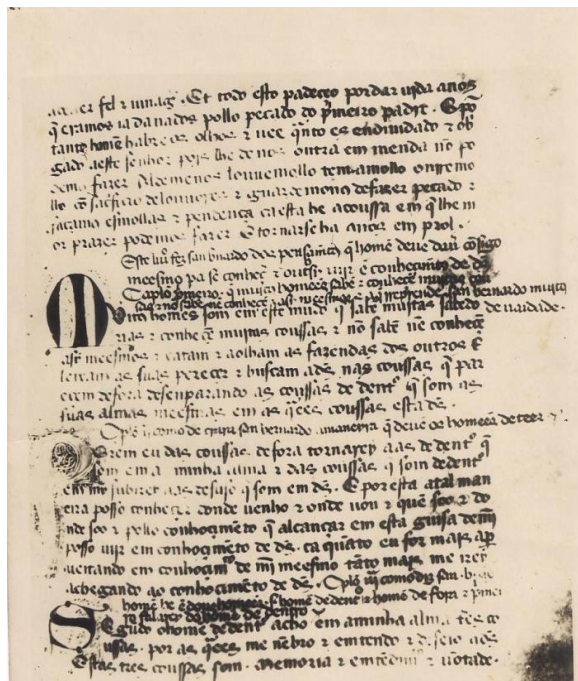 er fel ⁊ vinag̃. Et todo esto padeceo por dar vida a nos
q̃ eramos ia danados pollo pecado do p̃meiro padre. E põ
tanto home habre os olhos ⁊ vee q̃nto es endiuidado ⁊ ob
gado a este senhor pois lhe de nos outra emmenda nõ po
demos fazer. Aldemenos louuemollo tem amollo
llo cõ sacrificio de louuores ⁊ guardemonos de fazer pecado ⁊
façamo esmollas ⁊ pendença ca esta he a coussa em q̃ lhe m
or prazer podemos fazer. E tornarseha a nos em prol.
Este liu̇ fez san b̃nardo dos pensam̃tos q̃ home deue dau̇ cõsigo
meesmo pa se conhoc̃ ⁊ outsi. vijr ẽ conhoçim̃to de ds̃.
Caplo p̃meiro. q̃ muitos homeẽs sabẽ ⁊ conhocẽ muitas cou
sas ⁊ nõ sabẽ nẽ conhocẽ asi meesmos ⁊ rep̃rende san bernardo muito
Muitos homẽs som em este mũdo q̃ sabẽ muitas de vaidade.
uas ⁊ conhocẽ muitas coussas ⁊ nõ sabẽ nẽ conhocẽ
assi meesmos ⁊ catam ⁊ aolham as fazendas dos outros E
leixam as suas perecer ⁊ buscam a ds̃ nas coussas q̃ par
ecem de fora desenparando as coussas de dent° q̃ som as
suas almas meesmas em as q̃es coussas esta ds̃.
Cplo ij como de mostra san bernardo a maneira q̃ deuẽ os homeẽs de teer
Porem eu das coussas de fora tornarey aas de dent° q̃
som em a minha alma ⁊ das coussas q̃ som de dent°
em mj subirei aas de suso q̃ som em ds̃. E por esta atal man
eira posso conhoçer donde uenho ⁊ onde vou ⁊ que soo ⁊ do
nde soo ⁊ pello conhoçimẽto q̃ alcançar em esta guisa de mj̃
posso vijr em conhoçimẽto de ds̃. ca quãto eu for mais ap̃
ueitando em conhoçim̃to de mj̃ meesmo tãto mais me irey
achegando ao conhoçimẽto de ds̃. Cplo iij como diz san b̃
home he home de dent° ⁊ home de fora ⁊ primei
ro fala do home de dentro
Segũdo o home de dent° acho em a minha alma tẽs co
ussas. por as q̃ees me nẽbro ⁊ emtendo ⁊ deseio a ds̃
Estas tres coussas som. Memoria ⁊ emtendim̃ ⁊ võtade.